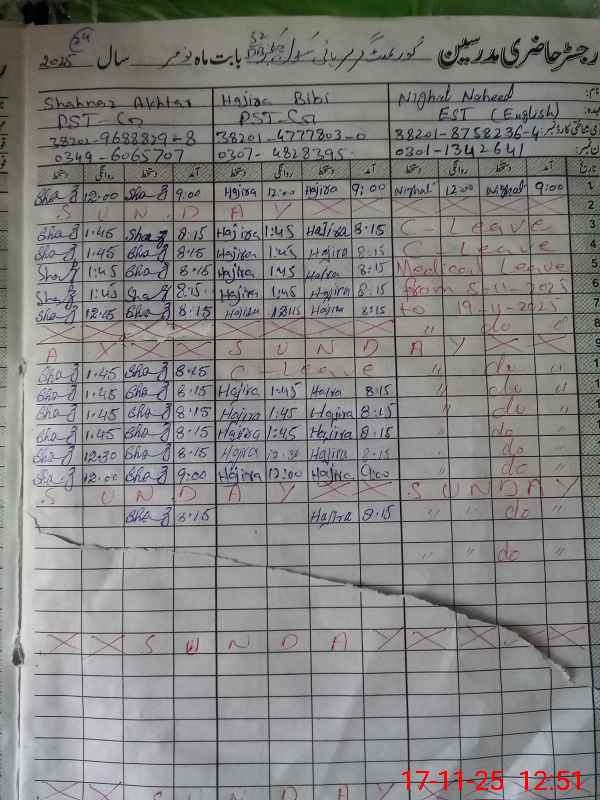 رجسٹر حاضری مدرسین گورنمنٹ گرلز پرائمری سکول بابت ماہ نومبر سال 2025
Shahnaz Akhtar Hajira Bibi Nighat Naheed
PST- PST- EST (English)
38202-9688829-8 38201-4777803-0 38201-8758236-4
0349-6065707 0307-4828395 0301-1342641
Shaz 12:00 Shaz 9:00 Hajira 12:00 Hajira 9:00 Nighat 12:00 Nighat 9:00 1
S U N D A Y 2
Shaz 1:45 Shaz 8:15 Hajira 1:45 Hajira 8:15 C-Leave 3
Shaz 1:45 Shaz 8:15 Hajira 1:45 Hajira 8:15 C-Leave 4
Shaz 1:45 Shaz 8:15 Hajira 1:45 Hajira 8:15 Medical Leave 5
Shaz 1:45 Shaz 8:15 Hajira 1:45 Hajira 8:15 from 5-11-2025 6
Shaz 12:15 Shaz 8:15 Hajira 12:15 Hajira 8:15 to 19-11-2025 7
" do " 8
A Y S U N D A Y 9
Shaz 1:45 Shaz 8:15 C-Leave " do " 1
Shaz 1:45 Shaz 8:15 Hajira 1:45 Hajira 8:15 " do " 1
Shaz 1:45 Shaz 8:15 Hajira 1:45 Hajira 8:15 " do " 1
Shaz 1:45 Shaz 8:15 Hajira 1:45 Hajira 8:15 " do " 1
Shaz 12:30 Shaz 8:15 Hajira 12:30 Hajira 8:15 " do "
Shaz 12:00 Shaz 9:00 Hajira 12:00 Hajira 9:00 " do "
S U N D A Y S U N D A Y
Shaz 8:15 Hajira 8:15 " " do "
" " do "
S U N D A Y
S U N D A Y
17-11-25 12:51